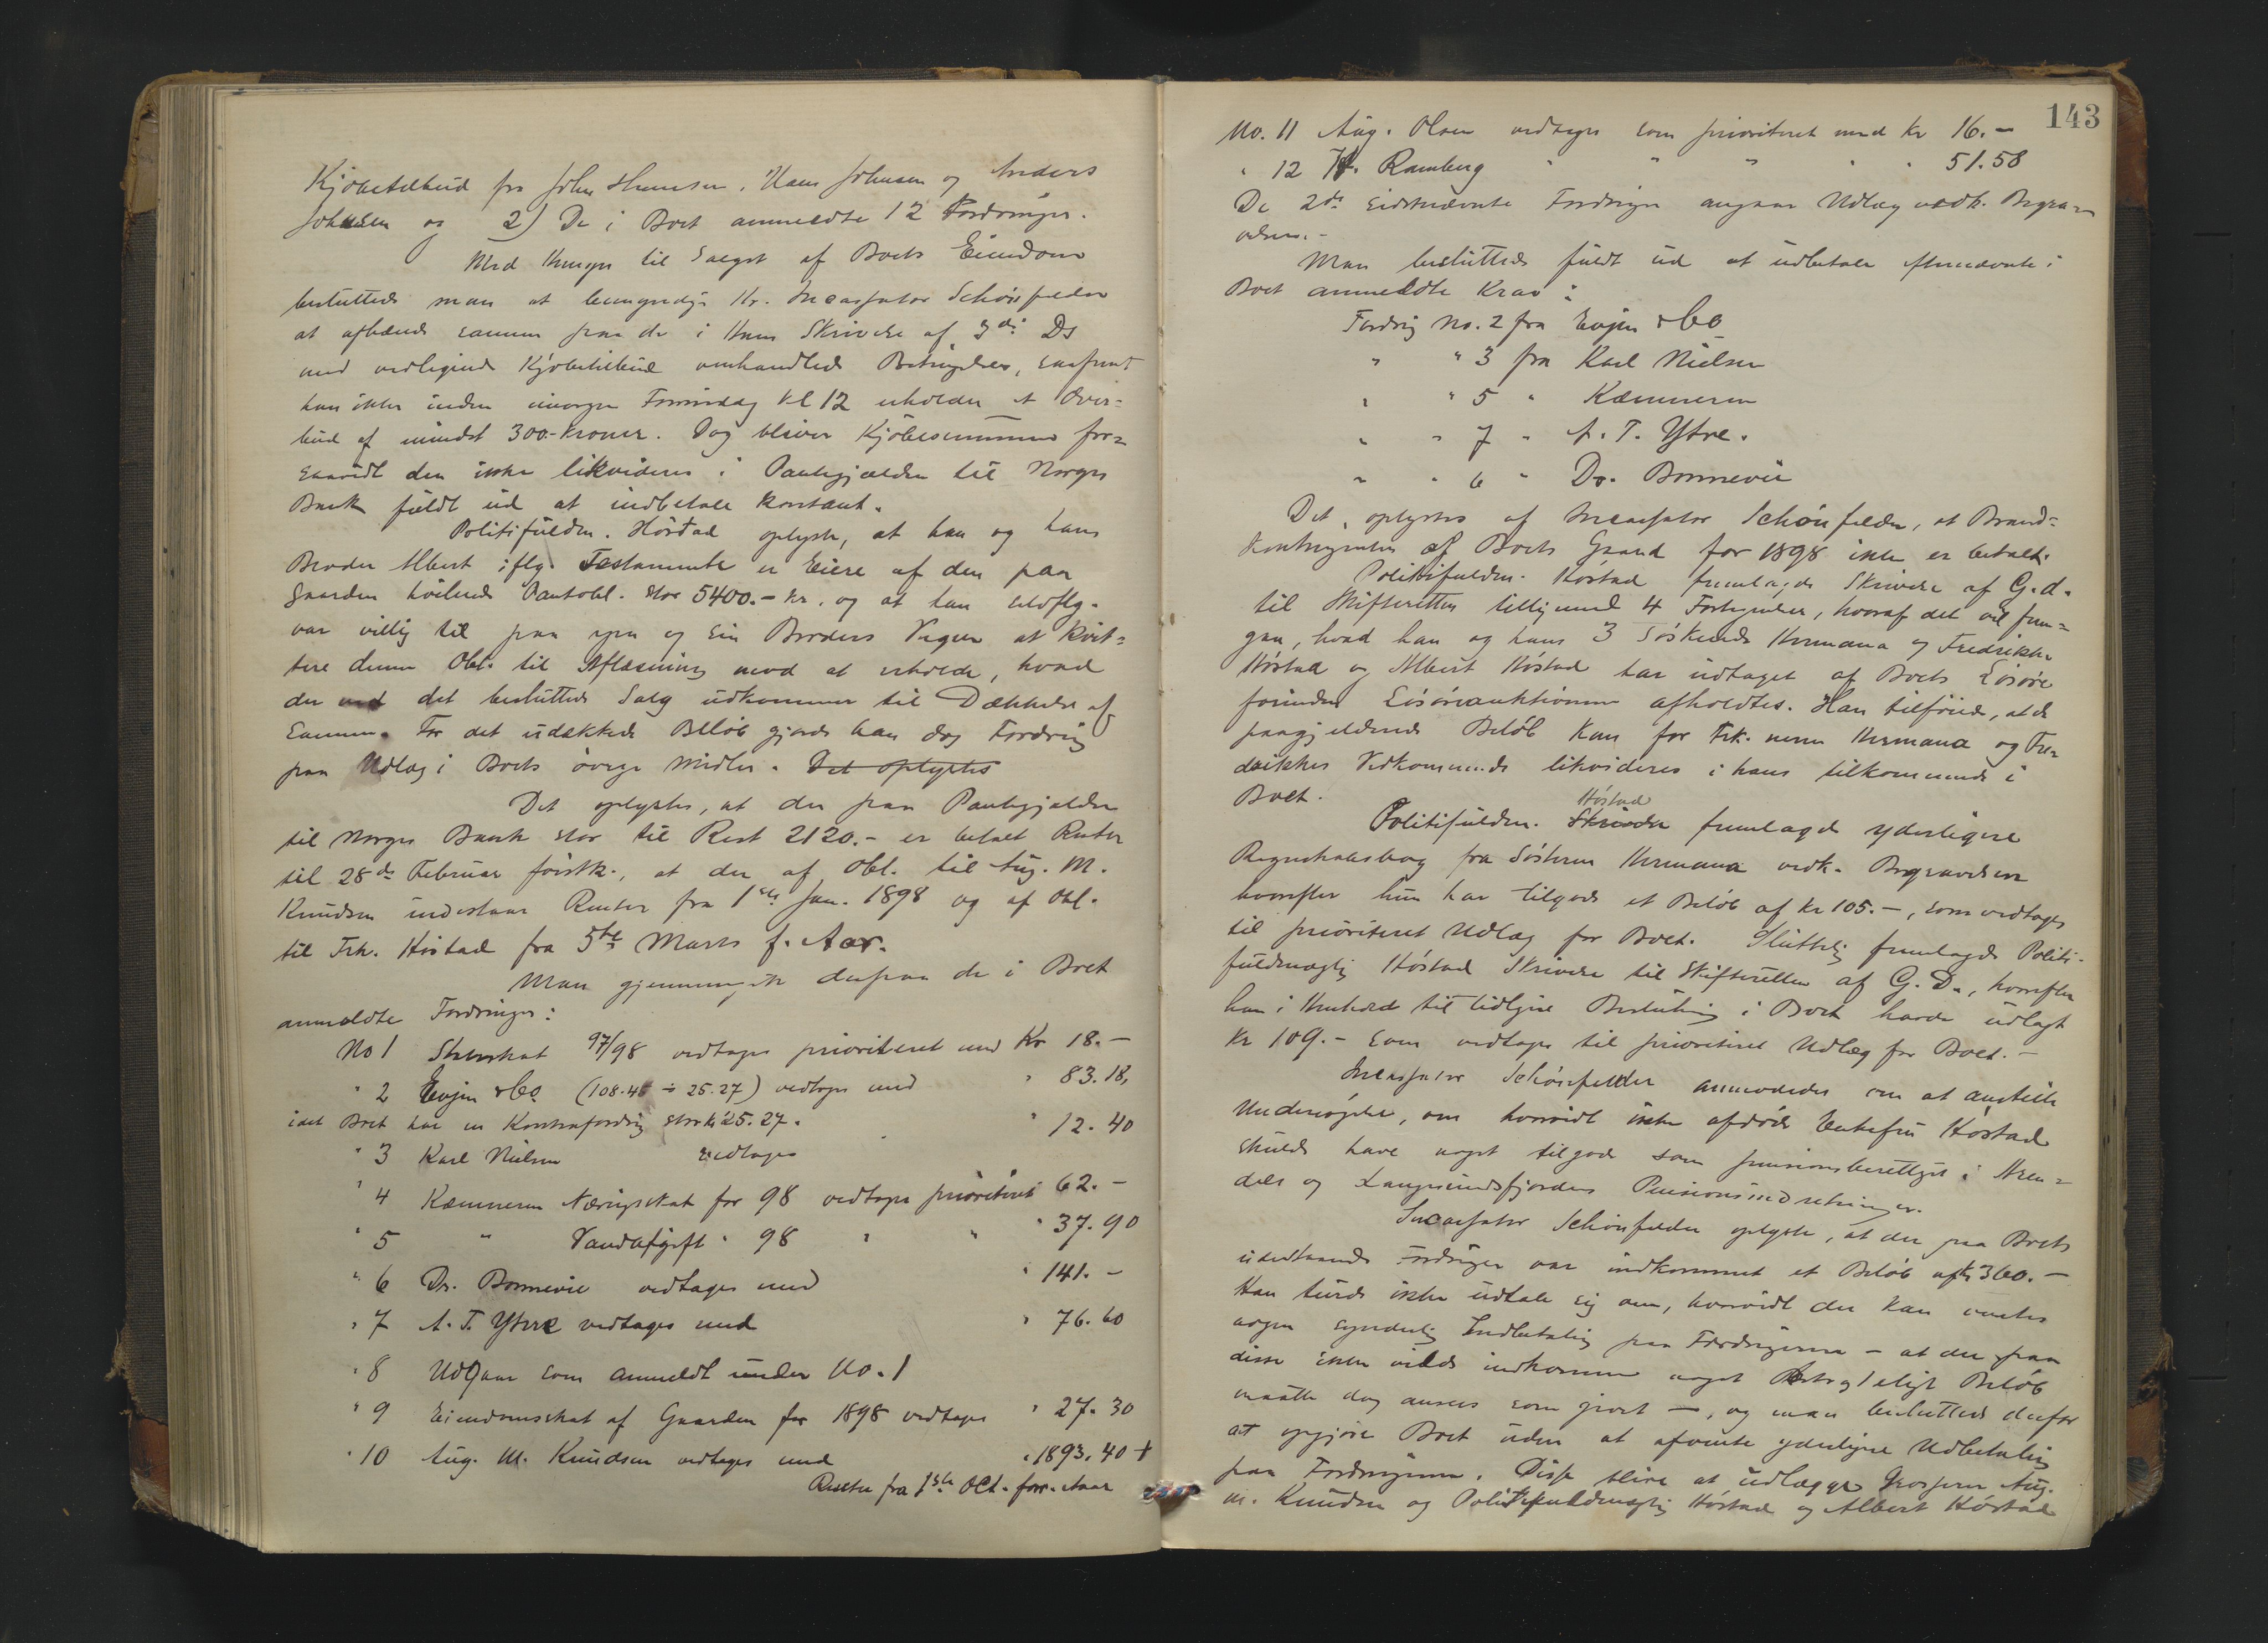 Kjøbetilbud fra John Hansen, Hans Johnsen og Anders
Johnsen og 2) De i Boet anmeldte 12 Fordringer.
Med Hensyn til Salget af Boets Eiendom
besluttede man at bemyndige Hr. Incassator Schønfelder
at afhænde samme paa de i Hans Skrivelse af 3die Ds
med vedliggende Kjøbetilbud omhandlede Betingelser, saafremt
han ikke inden imorgen Formiddag Kl 12 erholder et Over-
bud af mindst 300.- Kroner. Dog bliver Kjøbesummen for-
saavidt den ikke likvideres i Pantegjælden til Norges
Bank fuldt ud at indbetale kontant.
Politifuldm. Høstad oplyste, at han og hans
Broder Albert iflg. Testamente er Eiere af den paa
Gaarden hvilende Pantobl. stor 5400.- kr. og at han
var villig til paa egne og sin Broders Vegne at kvit-
tere denne Obl. til Aflæsning mod at erholde, hvad
der ved det besluttede Salg udkommer til Dækkelse af
samme. For det udækkede Beløb gjorde han dog Fordring
paa Udlæg i Boets øvrige Midler. Det oplystes
Det oplystes, at der paa Pantegjælden
til Norges Bank stor til Rest 2120.- er betalt Renter
til 28de Februar førstk., at der af Obl. til Aug. M.
Knudsen indestaar Renter fra 1ste Jan. 1898 og af Obl.
til Frk. Høstad fra 5te Marts f. Aar.
Man gjennemgik derpaa de i Boet
anmeldte Fordringer:
No 1 97/98 vedtages prioriteret med Kr 18.-
" 2 Evjen & Co. (108.45 ÷ 25.27) vedtages med " 83.18,
idet Boet har en Kontrafordring stor kr 25.27.
" 3 Karl Nielsen vedtages " 12.40
" 4 Kæmneren Næringsskat for 98 vedtages prioriteret 62.-
" 5 " Vandafgift " 98 " " " 37.90
" 6 Dr. Bonnevie vedtages med " 141.-
" 7 A. T. Ytre vedtages med " 76.60
" 8 Udgaar som anmeldt under No. 1
" 9 Eiendomsskat af Gaarden for 1898 vedtages " 27.30
" 10 Aug. M. Knudsen vedtages med " 1893.40 +
Renter fra 1ste Oct. forr. Aar
143
No. 11 Aug. Olsen vedtages som prioriteret med Kr 16.-
" 12 Ramberg " " " " " 51.58
De 2de sidstnævnte Fordringer angaar Udlæg vedk. Begra-
velsen.-
Man besluttede fuldt ud at udbetale efternævnte i
Boet anmeldte Krav:
Fordring No. 2 fra Evjen & Co
" " 3 fra Karl Nielsen
" " 5 " Kæmneren
" " 7 " A. T. Ytre.
" " 6 " Dr. Bonnevie
Det oplystes af Incassator Schønfelder, at Brand-
kontingenten af Boets Gaard for 1898 ikke er betalt.
Politifuldm. Høstad fremlagde Skrivelse af G. d.
til Skifteretten tilligemed 4 Fortegnelser, hvoraf det vil frem-
gaa, hvad han og hans 3 Søskende Hermana og Fredrikke
Høstad og Albert Høstad har udtaget af Boets Løsøre
forinden Løsøreauktionen afholdtes. Han tilføiede, at de
paagjeldende Beløb kan for Frk. nerne Hermana og Fre-
drikkes Vedkommende likvideres i hans tilkommende i
Boet.
Politifuldm. Høstad fremlagde yderligere
Regnskabsbog fra Søsteren Hermana vedk. Begravelsen
hvorefter hun har tilgode et Beløb af kr 105.-, som vedtages
til prioriteret Udlæg for Boet. Sluttelig fremlagde Politi-
fuldmægtig Høstad Skrivelse til Skifteretten af G. D., hvorefter
han i Henhold til tidligere Beslutning i Boet havde udlagt
Kr 109.- som vedtages til prioriteret Udlæg for Boet.-
Incassator Schønfelder anmodedes om at anstille
Undersøgelse, om hvorvidt ikke afdøde Enkefru Høstad
skulde have noget tilgode som pensionsberettiget i Aren-
dals og Langesundsfjordens Pensionsindretninger.
Incassator Schønfelder oplyste, at der paa Boets
udestaaende Fordringer var indkommet et Beløb af kr 360.-
Han turde ikke udtale sig om, hvorvidt der kan ventes
nogen synderlig Indbetaling paa Fordringerne - at der paa
disse ikke vilde indkomme noget Beløb
maatte dog ansees som givet -, og man besluttede derfor
at opgjøre Boet uden at afvente yderligere Udbetaling
paa Fordringerne. Disse blive at udlægge Grosserer Aug.
M. Knudsen og Politifuldmægtig Høstad og Albert Høstad